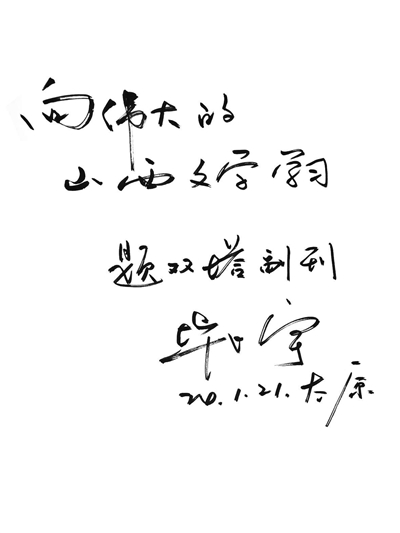 向伟大的
山西文学学习
题双塔副刊
毕飞宇
20.1.21.太原